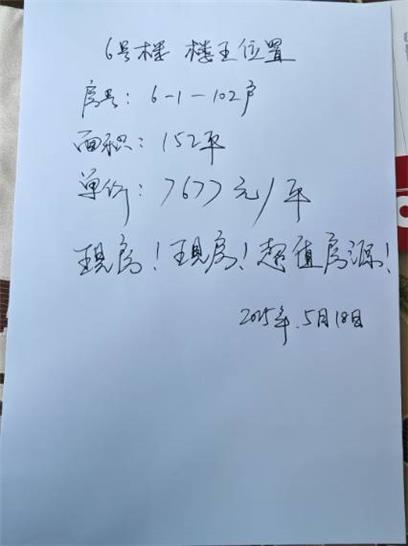 6号楼 楼王位置
房号：6-1-102户
面积：152平
单价：7677元/平
现房！现房！超值房源！
2025年.5月18日